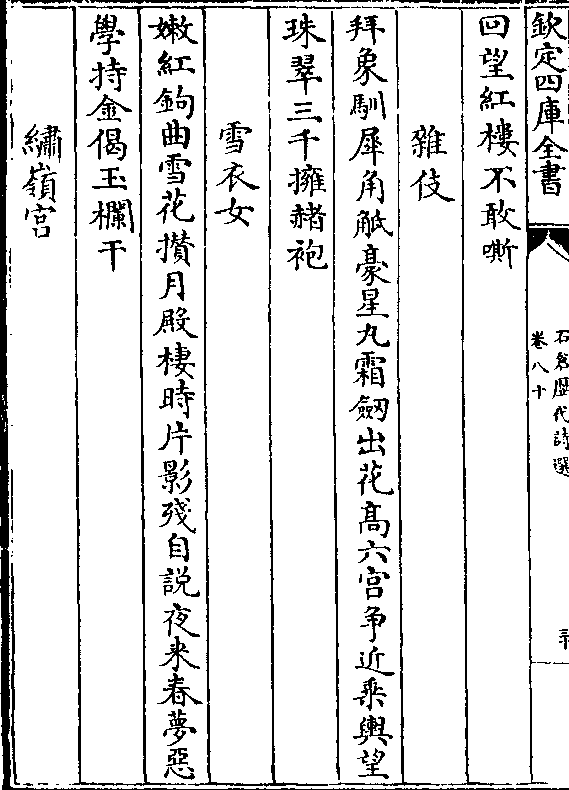 欽定四庫全書
石倉歷代詩選
卷八十
回望紅樓不敢嘶
雜伎
拜象馴犀角觝豪星丸霜劒出花髙六宫争近乗輿望
珠翠三千擁赭袍
雪衣女
嫩紅鉤曲雪花攢月殿棲時片影殘自説夜来春夢惡
學持金偈玉欄干
繡嶺宫